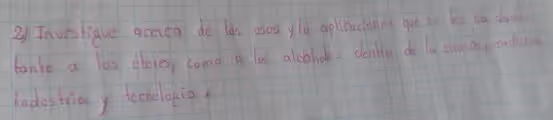 2) Investigue acerca de los usos y la aplicaciones que se les da
tanto a los éteres, como a los alcoholes dentro de la
industria y tecnología.